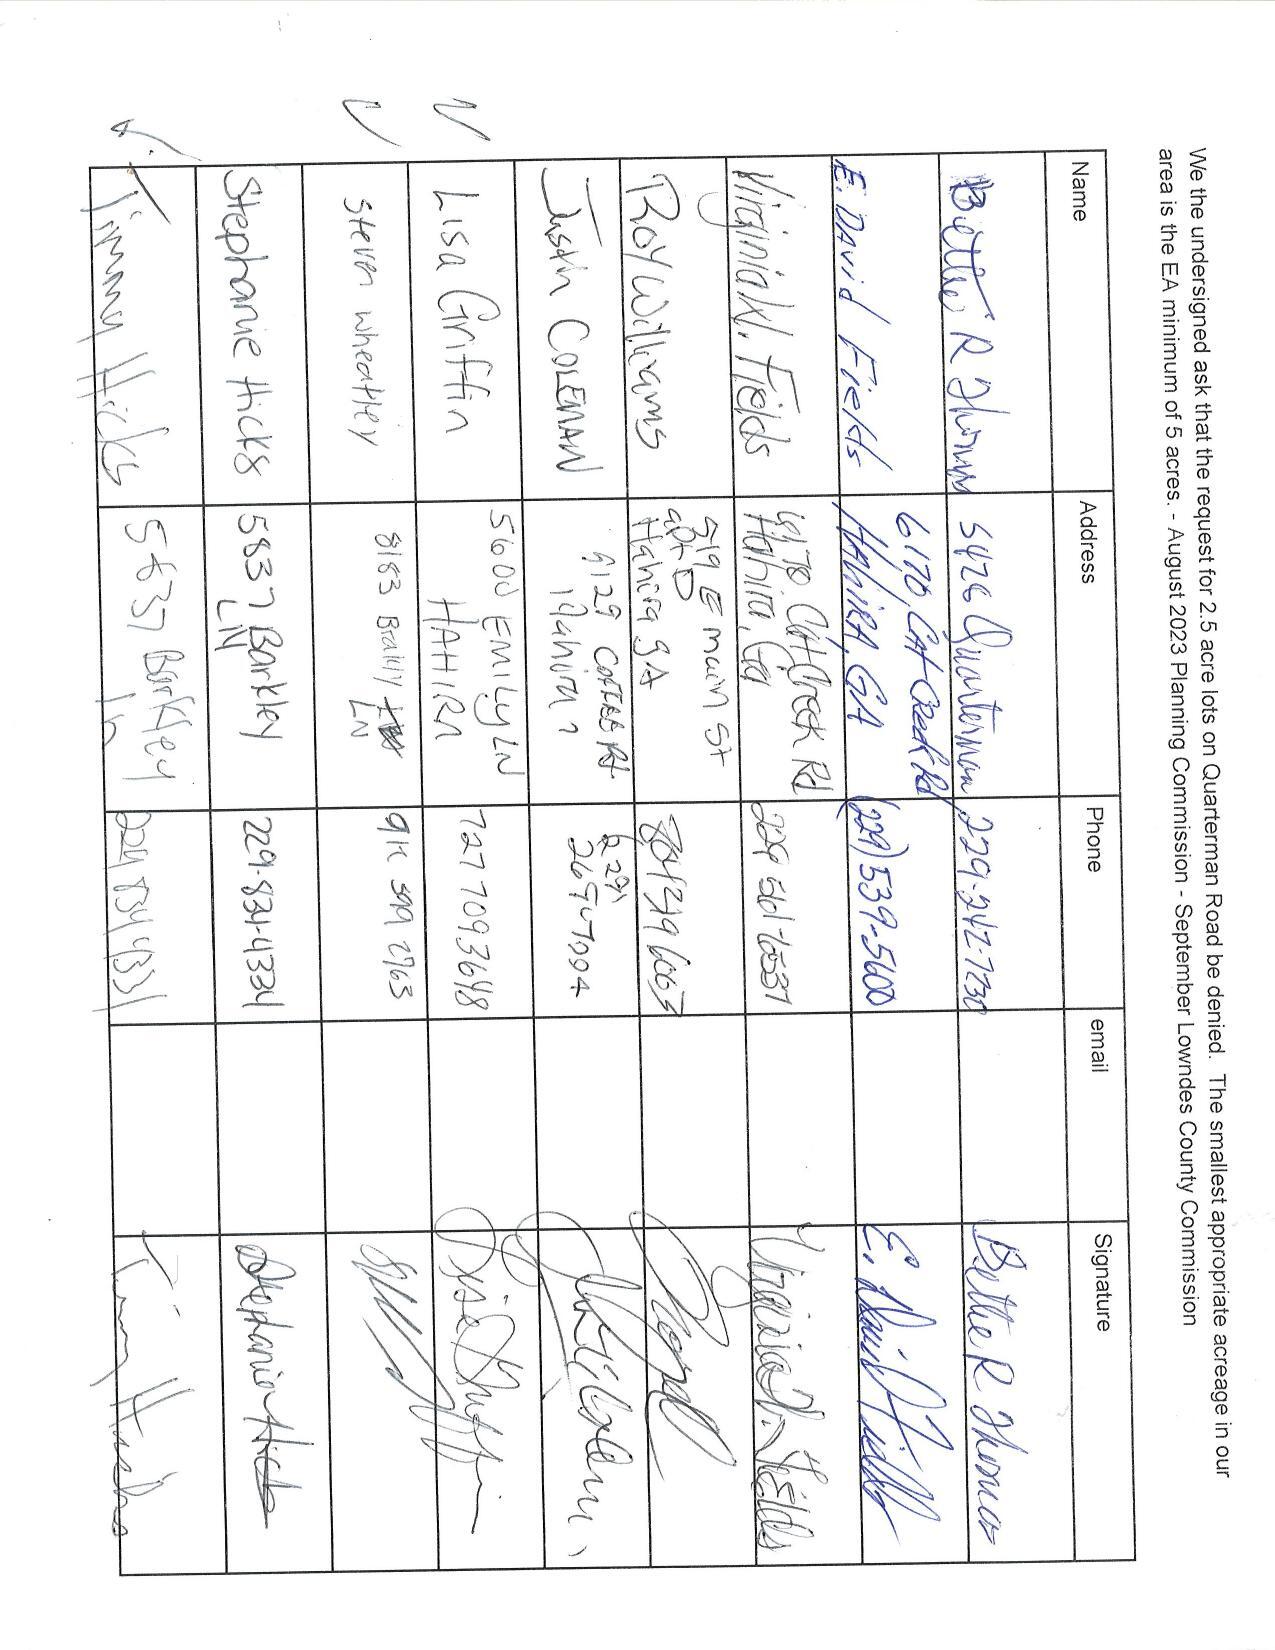 We the undersigned ask that the request for 2.5 acre lots on Quarterman Road be denied. The smallest appropriate acreage in our
area is the EA minimum of 5 acres. - August 2023 Planning Commission - September Lowndes County Commission
Name Address Phone email Signature
Bettie R Thomas 5426 Quarterman 229-242-7230 Bettie R Thomas
E. David Fields 6170, Cat Creek Rd (229) 539-5600 E. David Fields
HAHIRA, GA
Virginia W. Fields 6170 Cat Creek Rd Virginia W. Fields
Hahira, Ga
Roy Williams 519 E main St
apt D
Hahira gA
Justin COLEMAN Hahira 229
Lisa Griffin 5600 EMILY LN 727 709 3648 Lisa Griffin
HAHIRA
Steven Wheatley 8183 LN 599 2763
Stephanie Hicks 5837 Barkley 229-834-4334 Stephanie Hicks
LN
Jimmy Hicks 5837 Barkley 229 834 4331
Ln